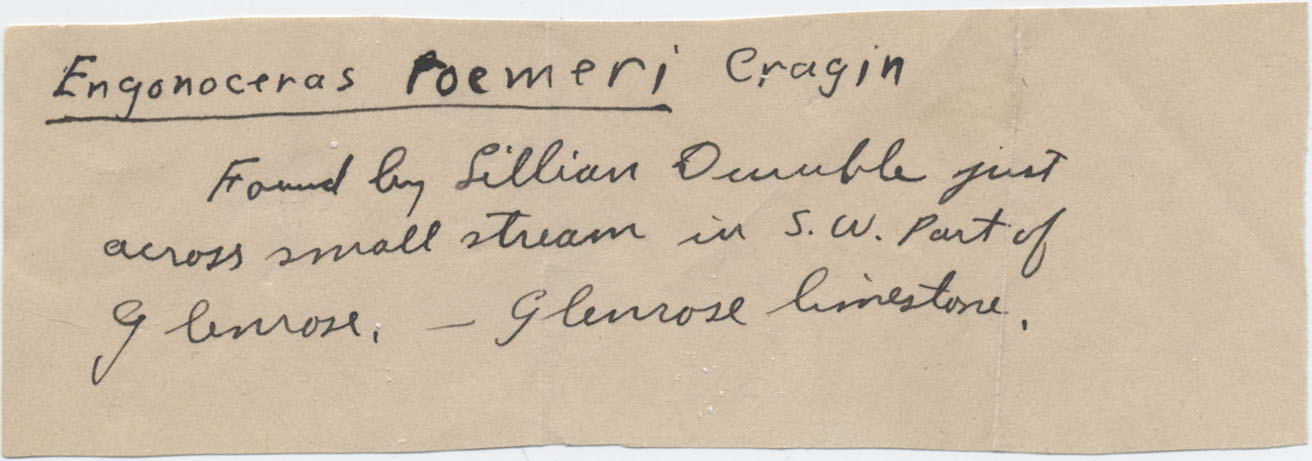 Engonoceras roemeri Cragin
Found by Lillian just
across small stream in S.W. Part of
Glenrose. — Glenrose limestone.